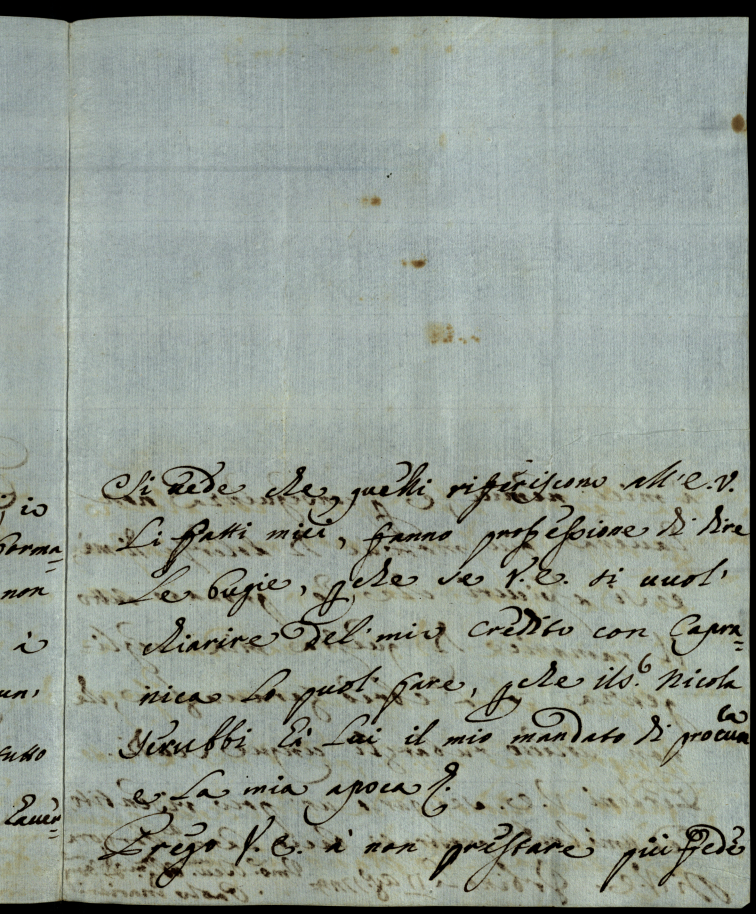 Si vede che quelli riferiscono all'E.V.
Li fatti miei, fanno professione di dire
Le bugie, p che se V.E. si vuol'
chiarire del' mio credito con Capra=
nica Lo puol' fare, p che il S.r Nicola
Hà Lui il mio mandato di procura
e La mia apoca
Prego V.E. à non prestare più fede
io
forma=
non
à
un'
tutto